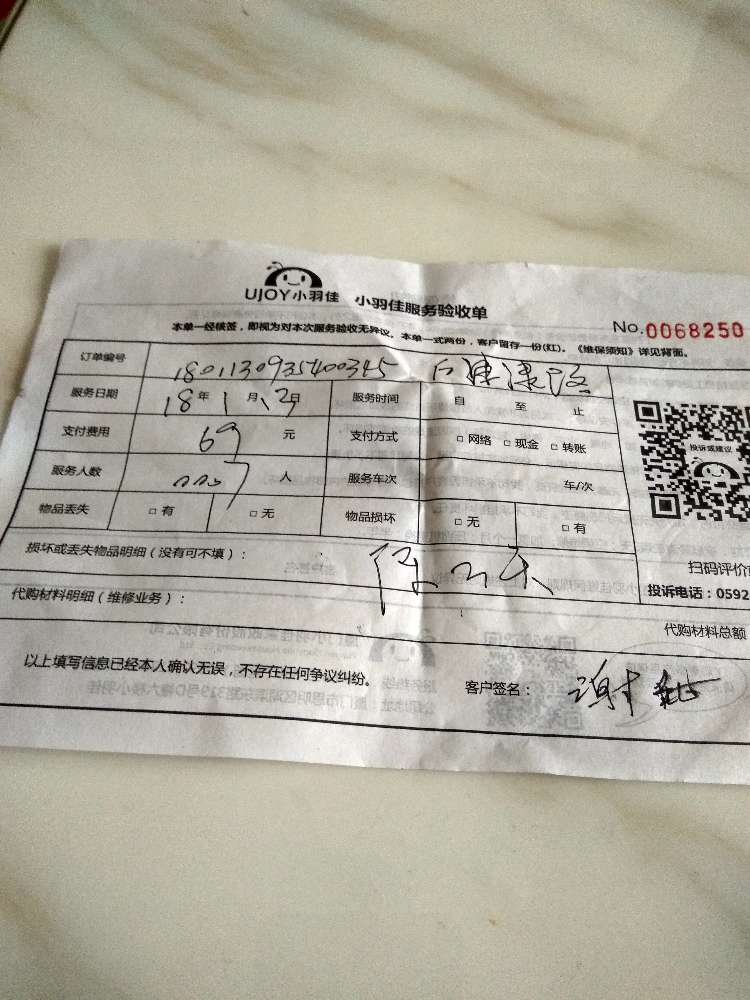 UJOY小羽佳 小羽佳服务验收单
No.0068250
本单一经核签，即视为对本次服务验收无异议。本单一式两份，客户留存一份(红)。《维保须知》详见背面。
订单编号 1801130935400345
服务日期 18年1月13日 服务时间 自 至 止
支付费用 69元 支付方式 □网络 □现金 □转账
投诉或建议
服务人数 人 服务车次 车/次
物品丢失 □有 □无 物品损坏 □无 □有
损坏或丢失物品明细（没有可不填）：
扫码评价
投诉电话：0592
代购材料明细（维修业务）：
代购材料总额
以上填写信息已经本人确认无误，不存在任何争议纠纷。 客户签名： 谢